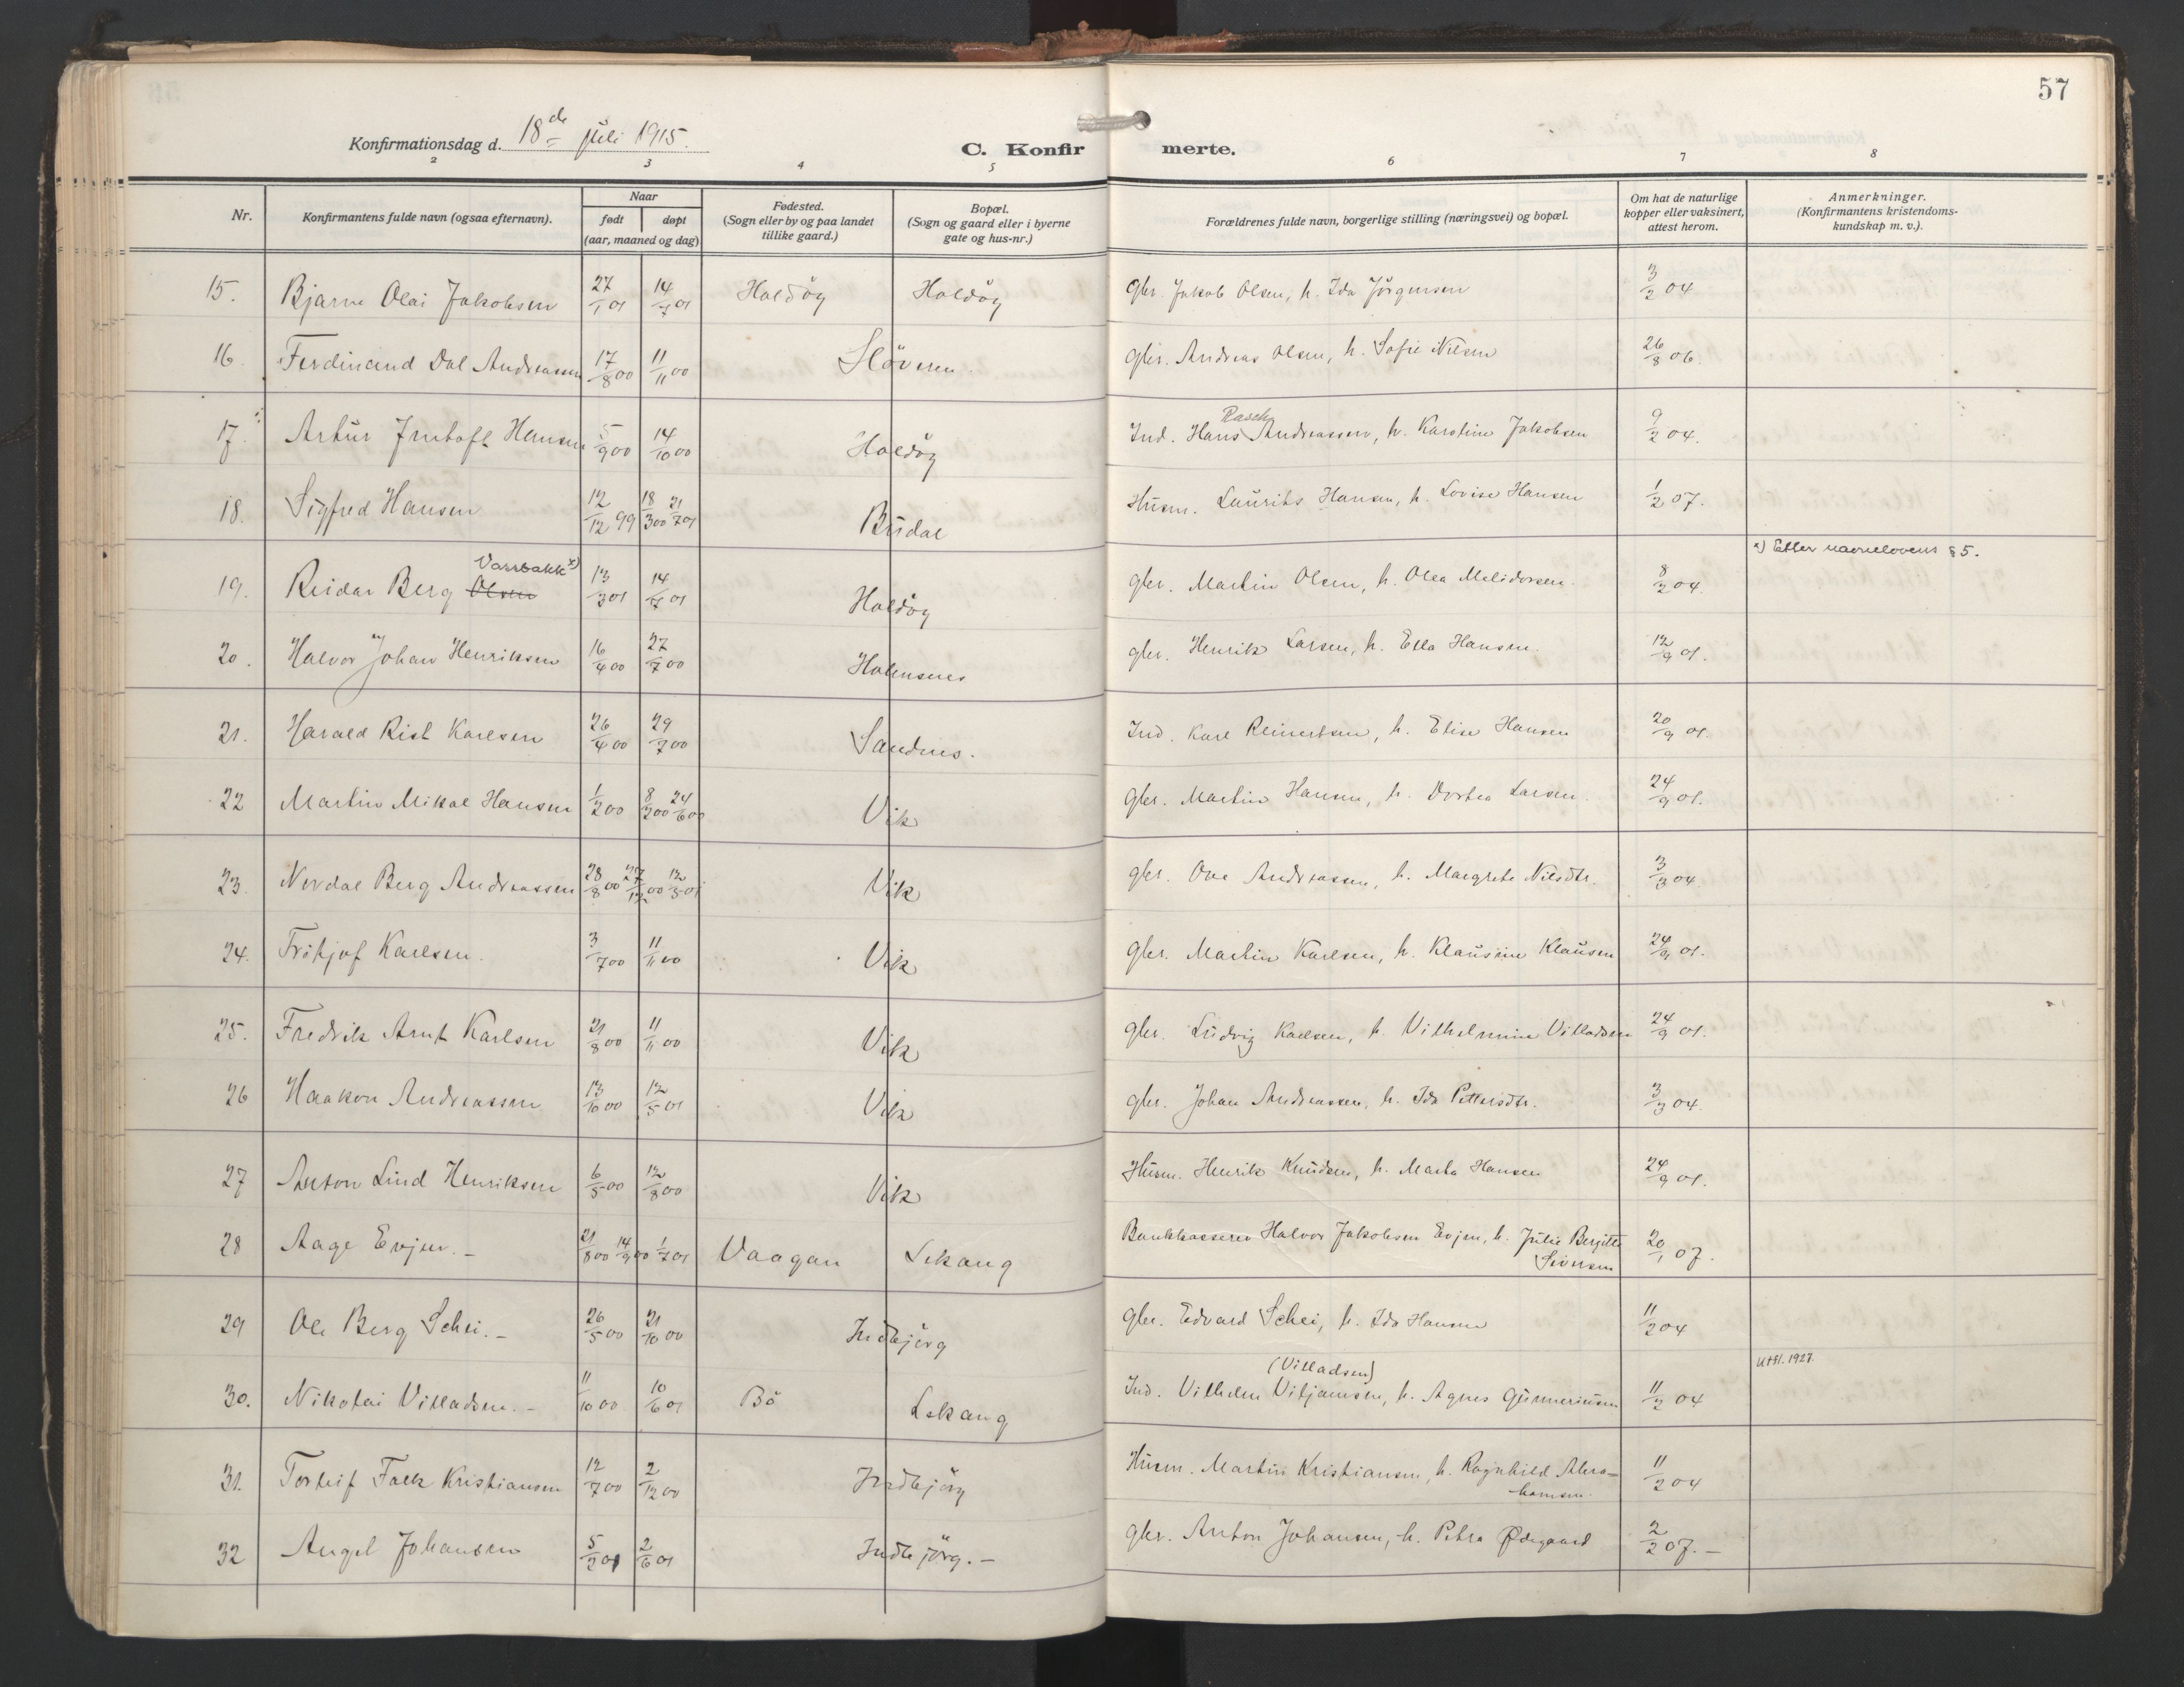 57
Konfirmationsdag d. 18de juli 1915.
C. Konfirmerte.
2 3 4 5 6 7 8
Nr. Konfirmantens fulde navn (ogsaa efternavn). Naar født døpt (aar, maaned og dag) Fødested. (Sogn eller by og paa landet tillike gaard.) Bopæl. (Sogn og gaard eller i byerne gate og hus-nr.) Forældrenes fulde navn, borgerlige stilling (næringsvei) og bopæl. Om hat de naturlige kopper eller vaksinert, attest herom. Anmerkninger. (Konfirmantens kristendoms-kundskap m. v.).
15. Bjarne Olai Jakobsen 27/1 01 14/7 01 Haldøg Haldøg Gbr. Jakob Olsen, h. Ida Jörgensen 3/2 04
16. Ferdinand Dal Andreassen 17/8 00 11/11 00 Slöveren. gbr. Andreas Olsen, h. Sofie Nilsen 26/8 06.
17. Artur Hansen 5/9 00 14/10 00 Haldøg Ind. Hans Rasch Andreassen, h. Karoline Jakobsen 9/2 04.
18. Sigfred Hansen 12/12 99 18/3 00 21/7 01 Budal Husm. Laurits Hansen, h. Lovise Hansen 1/2 07.
19. Reidar Berg Olsen Varsbakk x) 13/3 01 14/7 01 Haldøg gbr. Martin Olsen, h. Olea Melidorsen. 8/2 04. x) Etter navnelovens § 5.
20. Halvor Johan Henriksen 16/4 00 27/7 00 Holmsnes gbr. Henrik Larsen, h. Ella Hansen. 12/9 01.
21. Harald Rist Karlsen 26/4 00 29/7 00 Sandnes. Ind. Karl Reinertsen, h. Elise Hansen 20/9 01.
22 Martin Mikal Hansen 1/2 00 8/2 00 24/6 00 Vik gbr. Martin Hansen, h. Dortea Larsen. 24/9 01.
23. Nordal Berg Andreassen 28/8 00 27/12 00 12/3 01 Vik gbr. Ove Andreassen, h. Margrete Nilsdtr. 3/3 04.
24. Fritjof Karlsen. 3/7 00 11/11 00 Vik gbr. Martin Karlsen, h. Klausine Klausen 24/9 01.
25. Fredrik Arnt Karlsen 21/8 00 11/11 00 Vik gbr. Ludvig Karlsen, h. Vilhelmine Villadsen 24/9 01.
26 Haakon Andreassen 13/10 00 12/5 01 Vik gbr. Johan Andreassen, h. Ida Pettersdtr. 3/3 04.
27 Anton Lind Henriksen 6/5 00 12/8 00 Vik Husm. Henrik Knudsen, h. Marta Hansen 24/9 01.
28 Aage Evjen. - 21/8 00 14/9 00 1/7 01 Vaagan Lekang Bankkasserer Halvor Jakobsen Evjen, h. Julie Bergitte Siversen 20/1 07.
29 Ole Berg Schei. - 26/5 00 21/10 00 Indbjörg gbr. Edvard Schei, h. Ida Hansen 11/2 04
30. Nikolai Villadsen. - 11/10 00 10/6 01 Bö Lekang Ind. Vilhelm Viljamsen, (Villadsen) h. Agnes Gunneriusen 11/2 04 Utfl. 1927.
31. Torleif Falk Kristiansen 12/7 00 2/12 00 Indbjörg Husm. Martin Kristiansen, h. Ragnhild Abra=
hamsen.
11/2 04
32 Angel Johansen 5/2 01 2/6 01 Indbjörg. - gbr. Anton Johansen, h. Petra Ødegaard 2/2 07. -